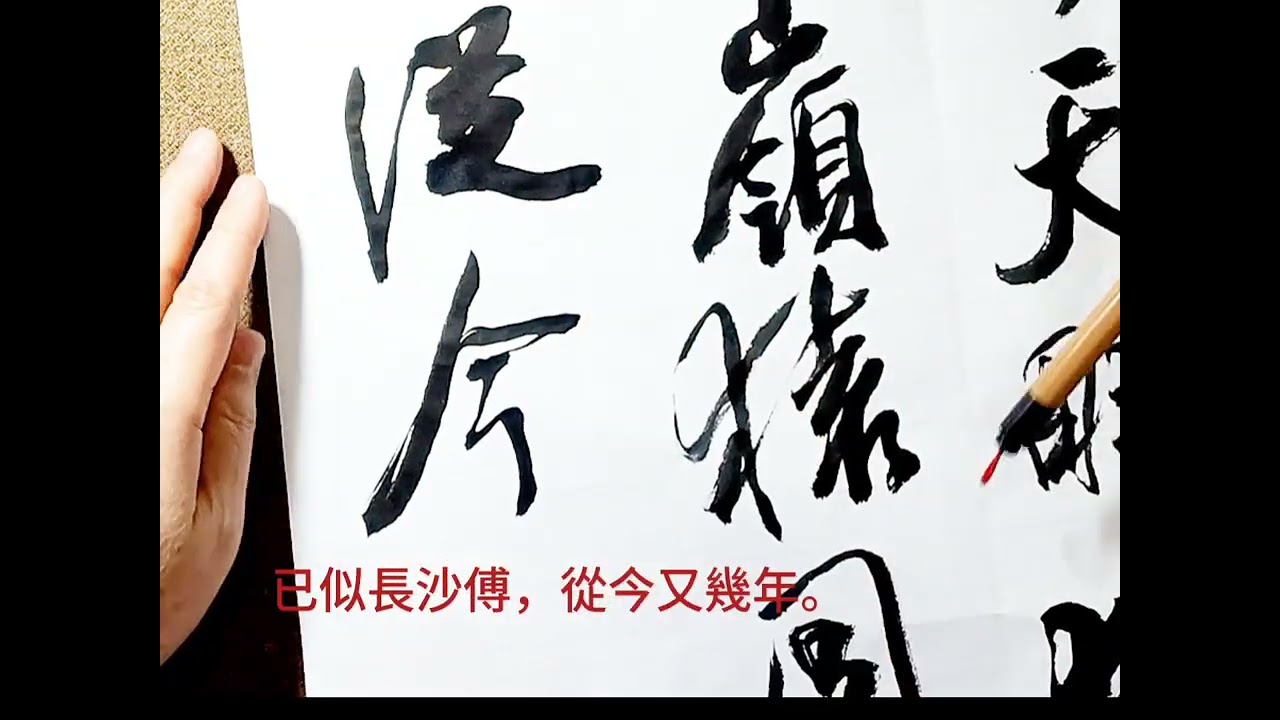 天
嶺猿同
從今
已似長沙傅，從今又幾年。